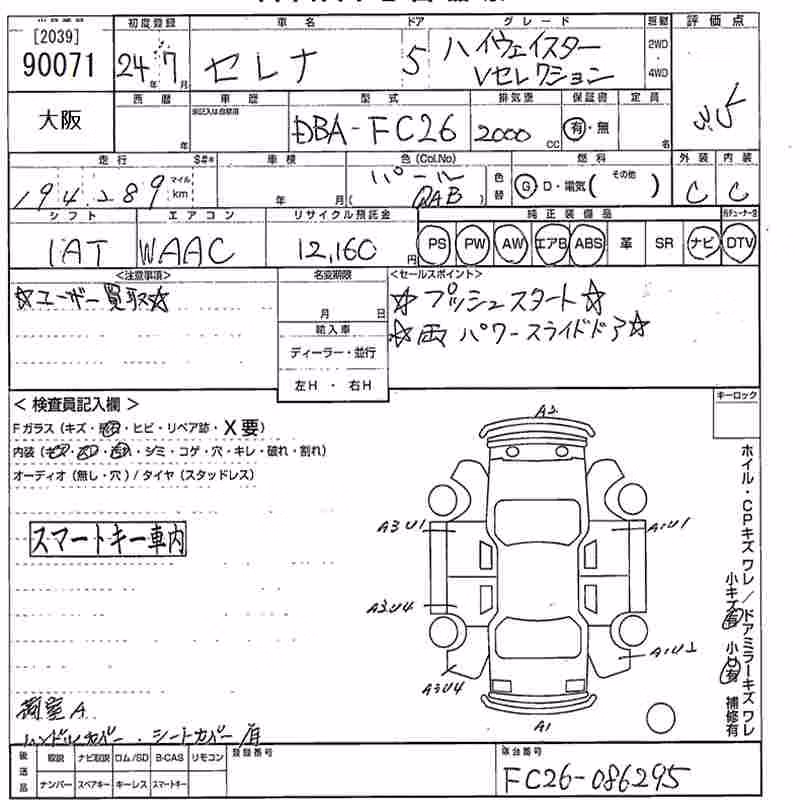 [2039]
90071
大阪
初度登録
24年7月
車名
セレナ
ドア
5
グレード
ハイウェイスター
Vセレクション
駆動
2WD
4WD
評価点
3.5
西暦
年
車歴
型式
DBA-FC26
排気量
2000 CC
保証書
有・無
定員
名
走行
194,289
マイル
km
S#*
車検
年 月
色(Col.No)
パール
(QAB)
色替
燃料
G・D・電気( その他 )
外装
C
内装
C
シフト
IAT
エアコン
WAAC
リサイクル預託金
12,160円
純正装備品
PS PW AW エアB ABS 革 SR ナビ DTV
<注意事項>
☆ユーザー買取☆
名変期限
月 日
輸入車
ディーラー・並行
左H ・ 右H
<セールスポイント>
☆プッシュスタート☆
☆両パワースライドドア☆
キーロック
<検査員記入欄>
Fガラス(キズ・ ・ヒビ・リペア跡・X要)
内装( ・ ・ ・シミ・コゲ・穴・キレ・破れ・割れ)
オーディオ(無し・穴)/タイヤ(スタッドレス)
スマートキー車内
A2
A3U1
A1U1
A3U4
A3U4
A1
ホイル・CPキズ ワレ/ドアミラーキズ ワレ
小キズ有 小凹有 補修有
ハンドルカバー・シートカバー有
後送品
取説 ナビ取説 ロム/SD B-CAS リモコン
ナンバー スペアキー キーレス スマートキー
登録番号
車台番号
FC26-086295